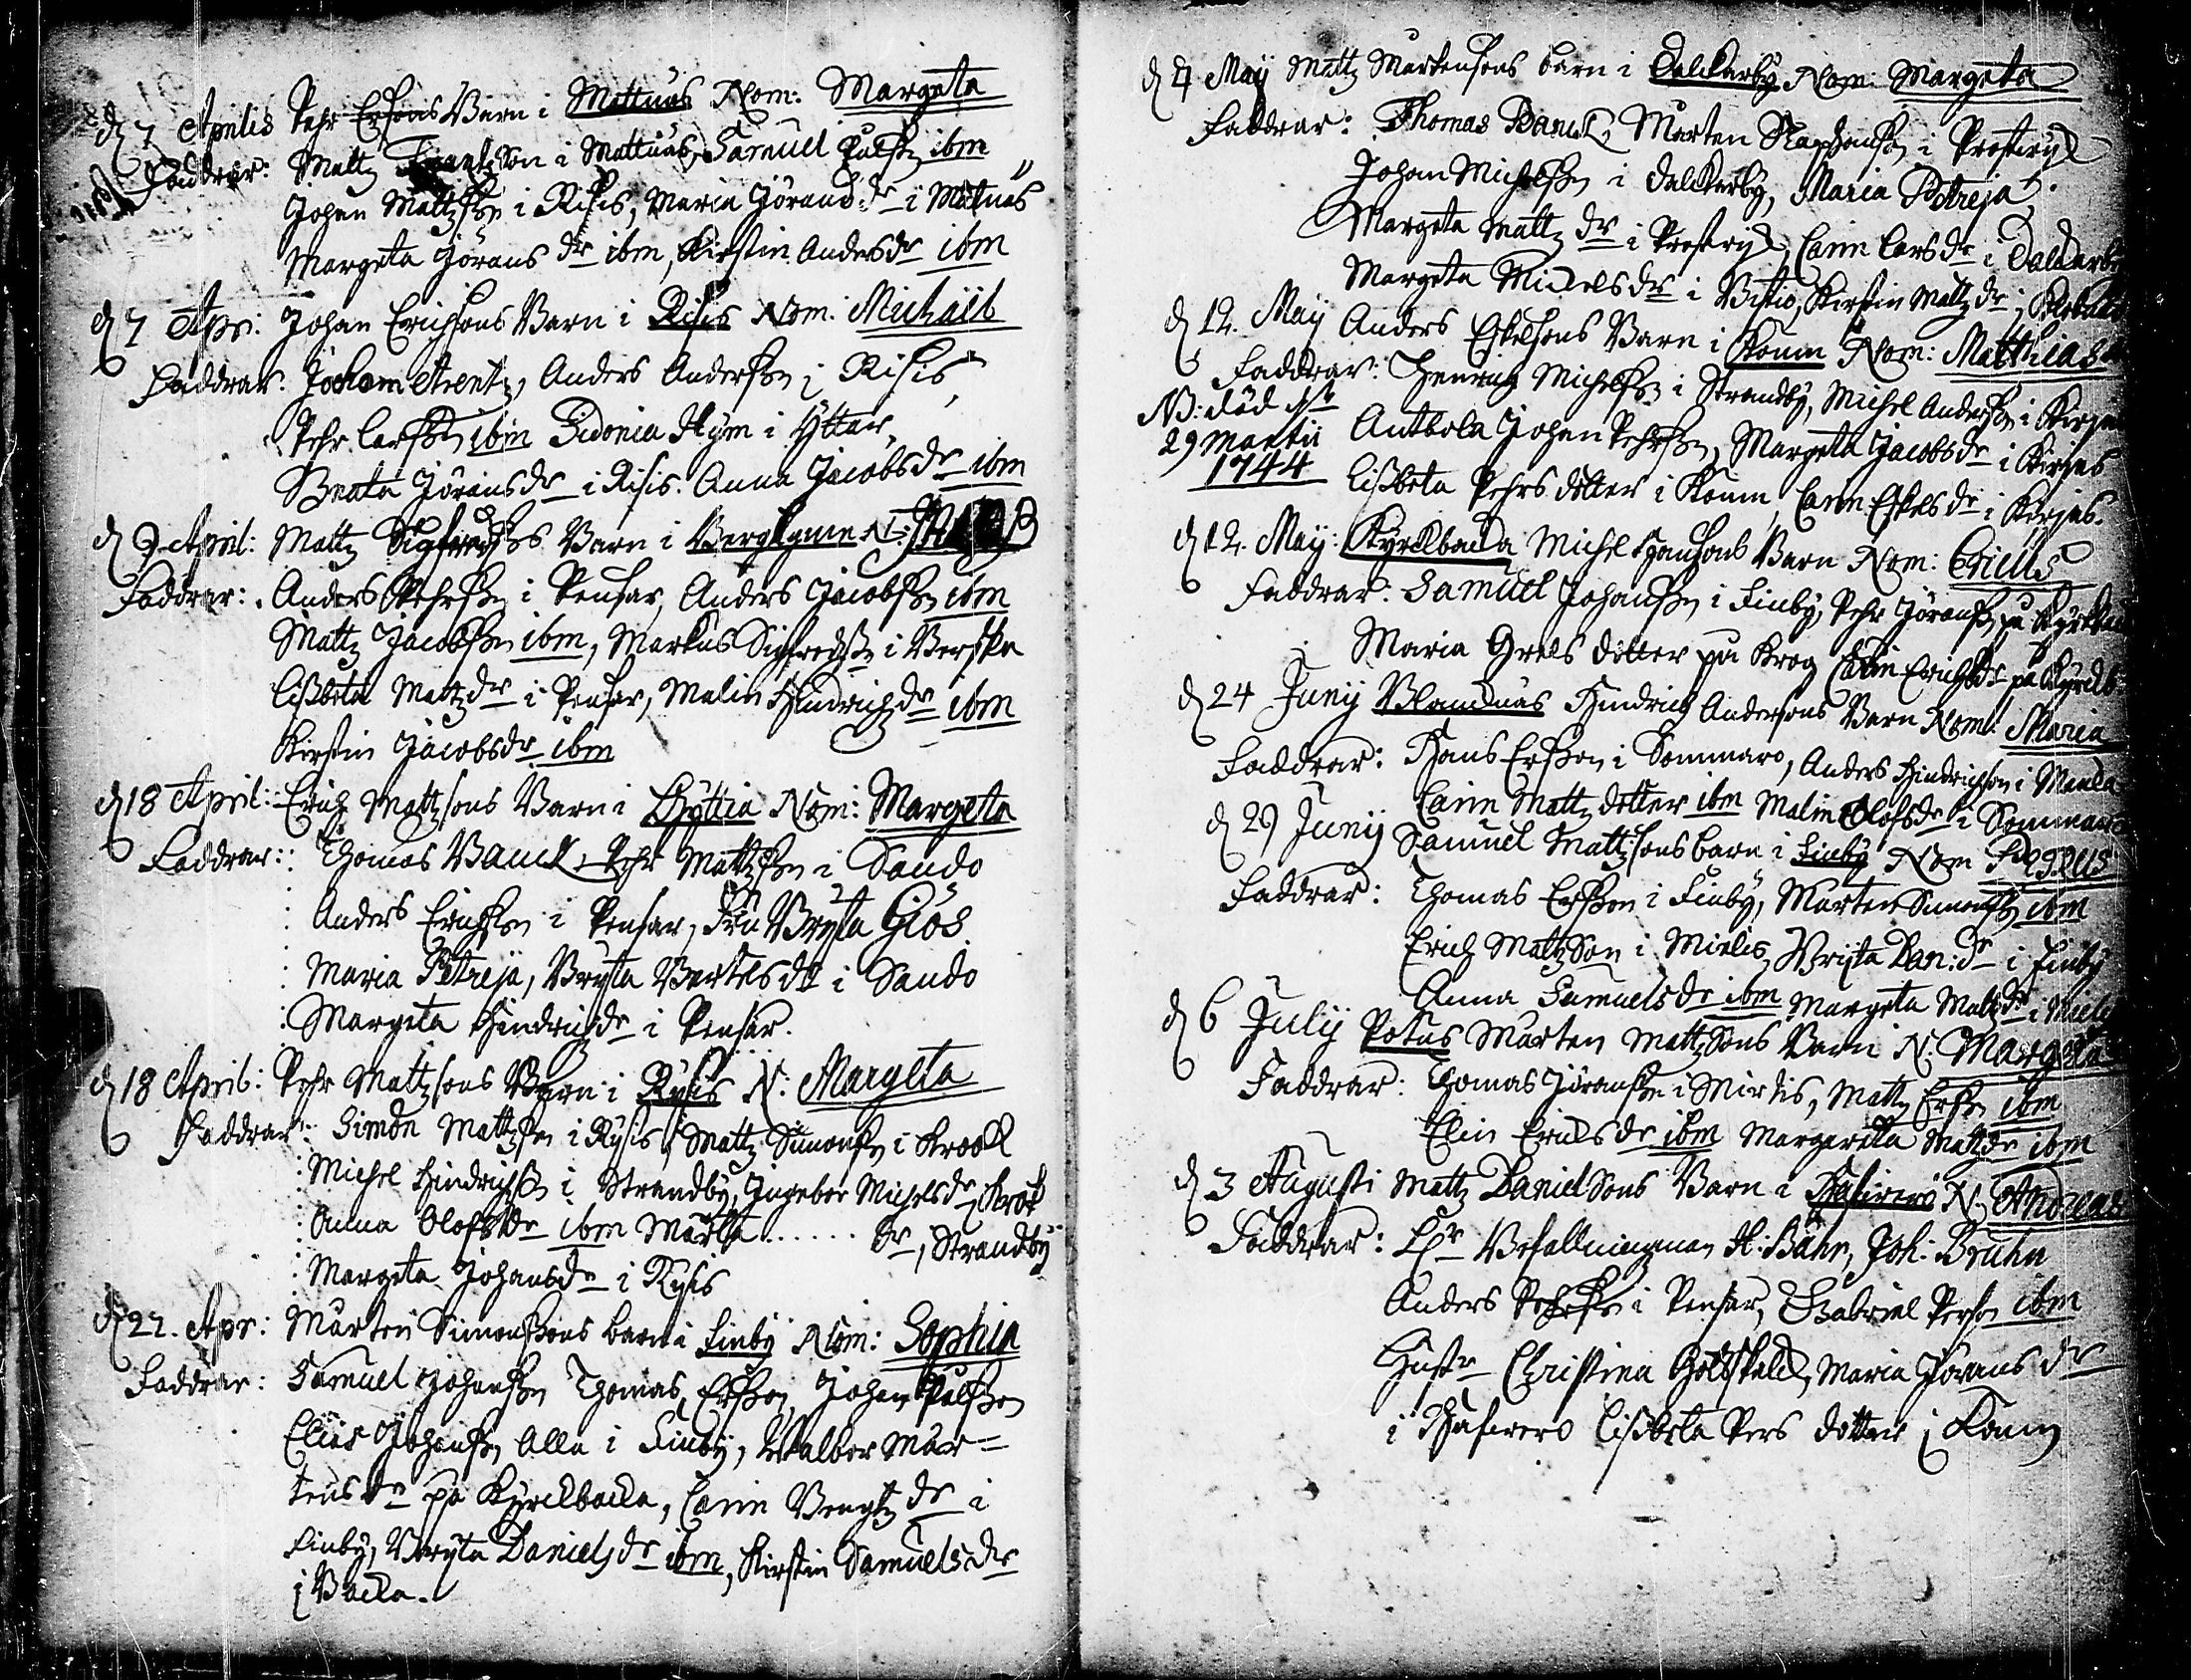 d 7 Aprilis Pehr Ersons Barn i Mattnäs Nom: Margeta
Faddrar: Mattz Son i Mattnäs, Samuel Pålsson ibm
Johan Mattzson i Risis, Maria Jörans dr i Mattnäs
Margeta Jörans dr ibm, Kirstin Anders dr ibm
d 7 Apr: Johan Erichsons Barn i Risis Nom: Michaël
Faddrar: Jocham Arentz, Anders Anderson i Risis,
Pehr Larsson ibm Sidonia Hÿm i Ytter,
Beata Jörans dr i Risis. Anna Jacobs dr ibm
d 9 April: Mattz Sigfredsons Barn i N:
Faddrar: Anders Pehrson i Pensar, Anders Jacobson ibm
Mattz Jacobson ibm, Markus Sigfredson i
Lisbeta Mattz dr i Pensar, Malin Hindrichz dr ibm
Kirstin Jacobs dr ibm
d 18 April: Erich Mattzsons Barn i Hyttia Nom: Margeta
Faddrar: Thomas Wanck, Pehr Mattzson i Sando
Anders Erichson i Pensar, Fru Brÿta Giös
Maria Petreja, Brÿta Bertels dr i Sando
Margeta Hindrichz dr i Pensar.
d 18 April: Pehr Mattzsons Barn i Rysis N: Margeta
Faddrar: Simon Mattzson i Rysis, Mattz Simonson i Krook
Michel Hindrichson i Strandbÿ, Ingebor Michels dr i Krok
Anna Olofs dr ibm Marta ...... dr i Strandbÿ
Margeta Johans dr i Rysis
d 22. Apr: Mårten Simonsons barn i Finbÿ Nom: Sophia
Faddrar: Samuel Johanson Thomas Ersson, Johan Pålson
Elias Johanson Alla i Finbÿ, Walbor Mår=
tens dr på Kyrckbacka, Carin Bengtz dr i
Finbÿ, Brÿta Daniels dr ibm, Kirstin Samuels dr
i Backa.
d 4 Maÿ Mattz Mårtensons barn i Dalckarbÿ Nom: Margeta
Faddrar: Thomas Wanck, Mårten Staphanson i Prostvik
Johan Michelson i Dalckarbÿ, Maria Petreja.
Margeta Mattz dr i Prostvik, Carin Lars dr i Dalckarbÿ
Margeta Mickels dr i Vikio, Kirstin Mattz dr i
d 12. Maÿ Anders Eskelsons Barn i Koum Nom: Matthias
Faddrar: Henrich Michelson i Strandbÿ, Michel Anderson i Kirjas
NB: död d
29 Martii
1744
Antbola Johan Pehrson, Margeta Jacobs dr i Kirjas
Lisbeta Pehrs dotter i Koum, Carin Eskels dr i Kirjas.
d 12. Maÿ: Kyrckbacka Michel Hansons Barn Nom: Ericus
Faddrar: Samuel Johanson i Finbÿ, Pehr Jöranson på Kyrckbacka
Maria Grels dotter på Krog Carin Erichs dr på Kyrckb
d 24 Junij Wandnäs Hindrich Andersons Barn Nom: Maria
Faddrar: Hans Ersson i Sommaro, Anders Hindrichson i
Carin Mattz dotter ibm Malin Olofs dr i Sommaro
d 29 Junij Samuel Mattzsons barn i Finbÿ Nom
Faddrar: Thomas Ersson i Finbÿ, Mårten Simonson ibm
Erich Mattzson i Mielis, Brijta Dan: dr i Finbÿ
Anna Samuels dr ibm Margeta Matts dr i Mielis
d 6 Julij Potus Mårten Mattzsons Barn N: Margeta
Faddrar: Thomas Jöranson i Mielis, Mattz Erson ibm
Elin Ericks dr ibm Margareta Mattz dr ibm
d 3 Augusti Mattz Danielsons Barn i Hafverö N: Andreas
Faddrar: Hr Befallningsman H: Bähr, Joh: Bruhn
Anders Pehrson i Pensar, Gabriel Person ibm
Hustr Christina Maria Jörans dr
i Hafverö Lisbeta Pers dotter i Koum